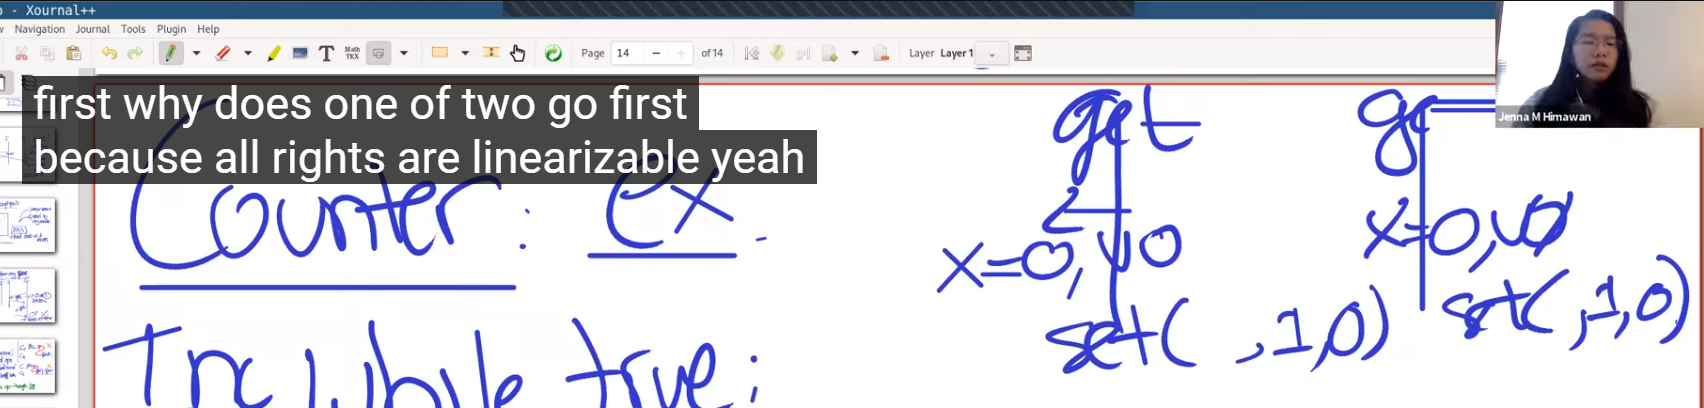 o - Xournal++
w Navigation Journal Tools Plugin Help
T Math TEX Page 14 of 14 Layer Layer 1
Jenna M Himawan
first why does one of two go first
because all rights are linearizable yeah
Counter: ex.
Inc while true:
get
x=0, v0
set( ,1,0)
ge
x=0, v0
set( ,1,0)